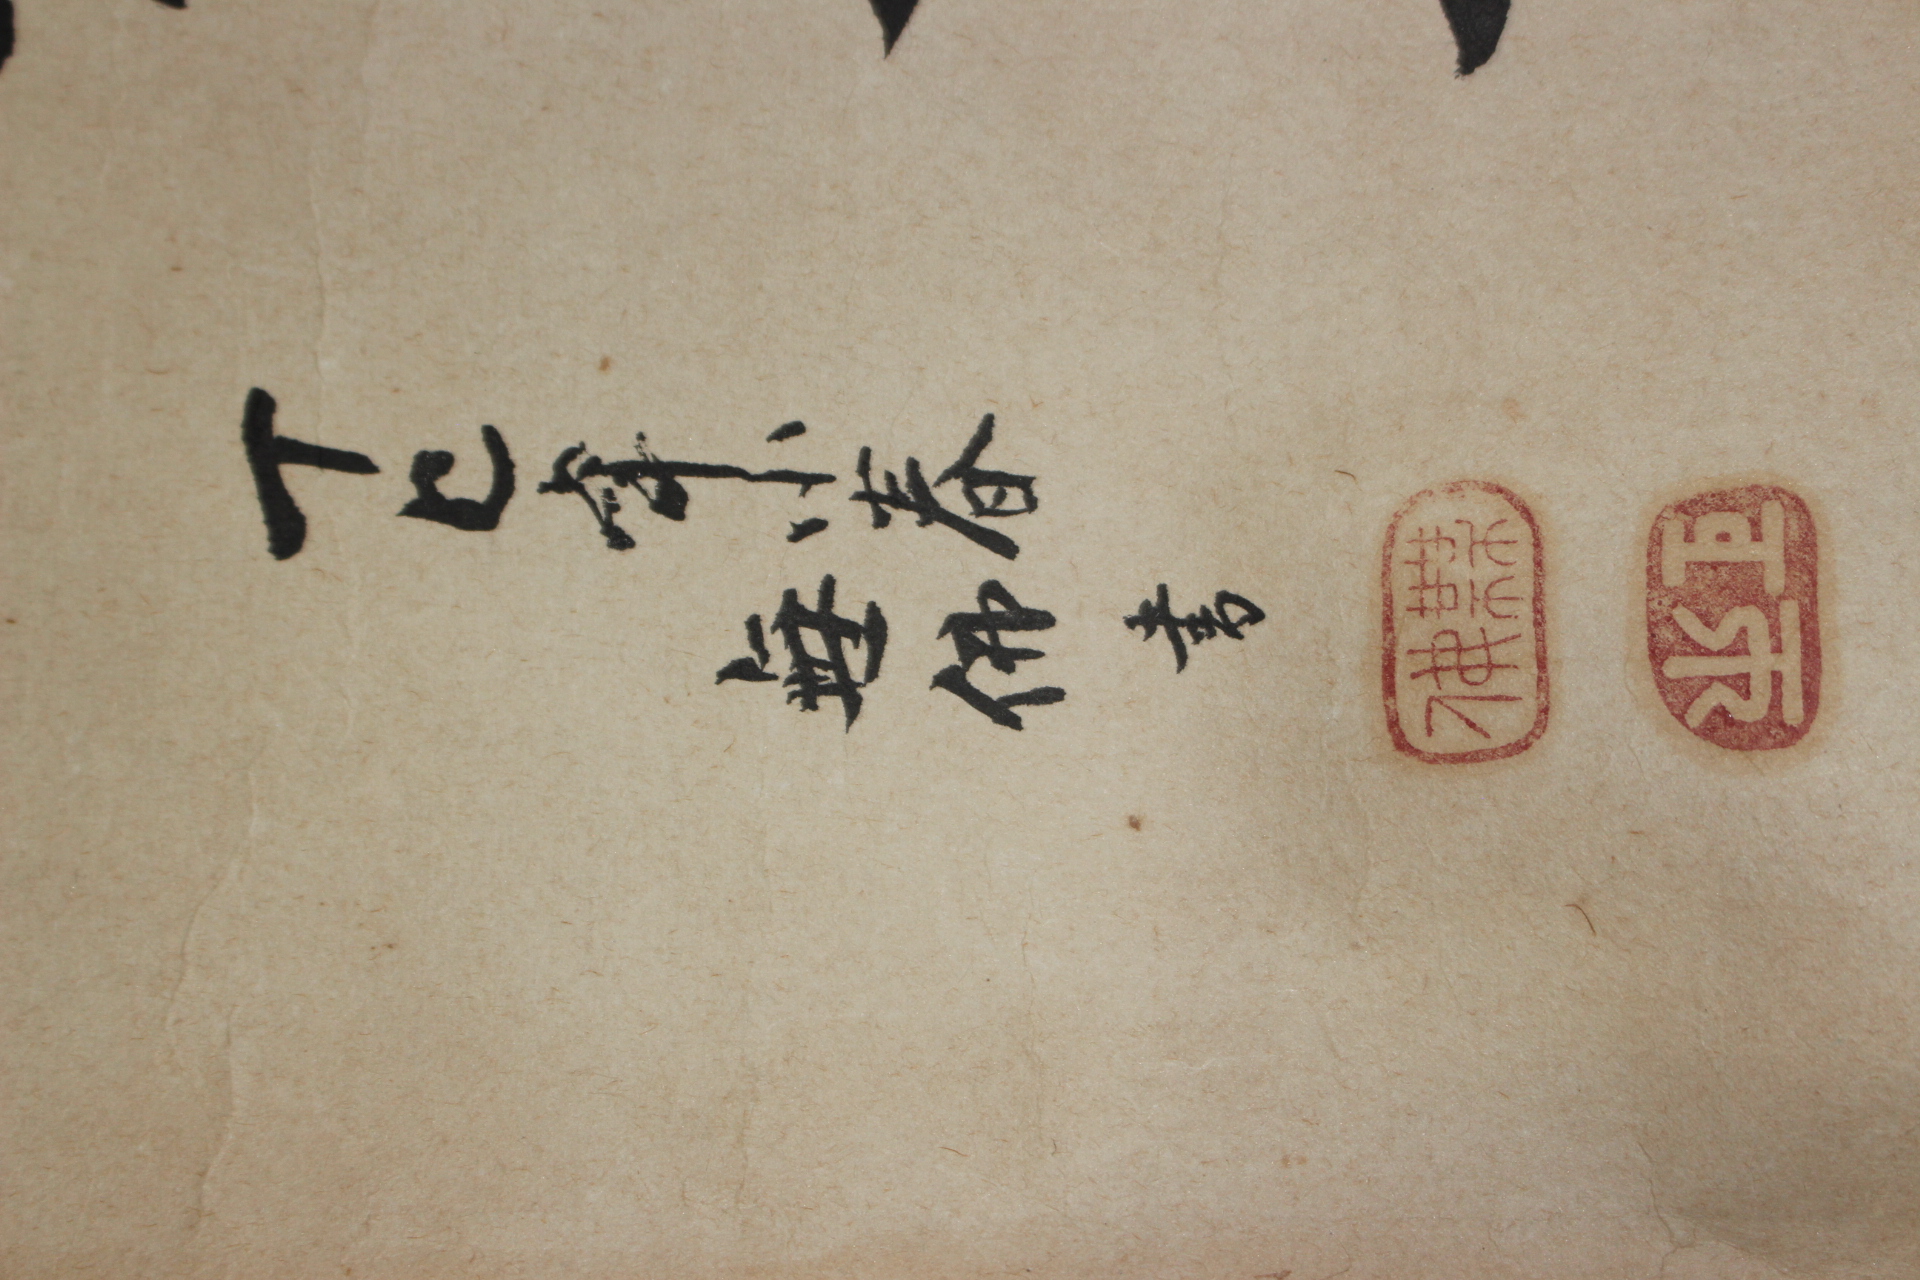 丁巳年小春
無佛書
無佛
巨生